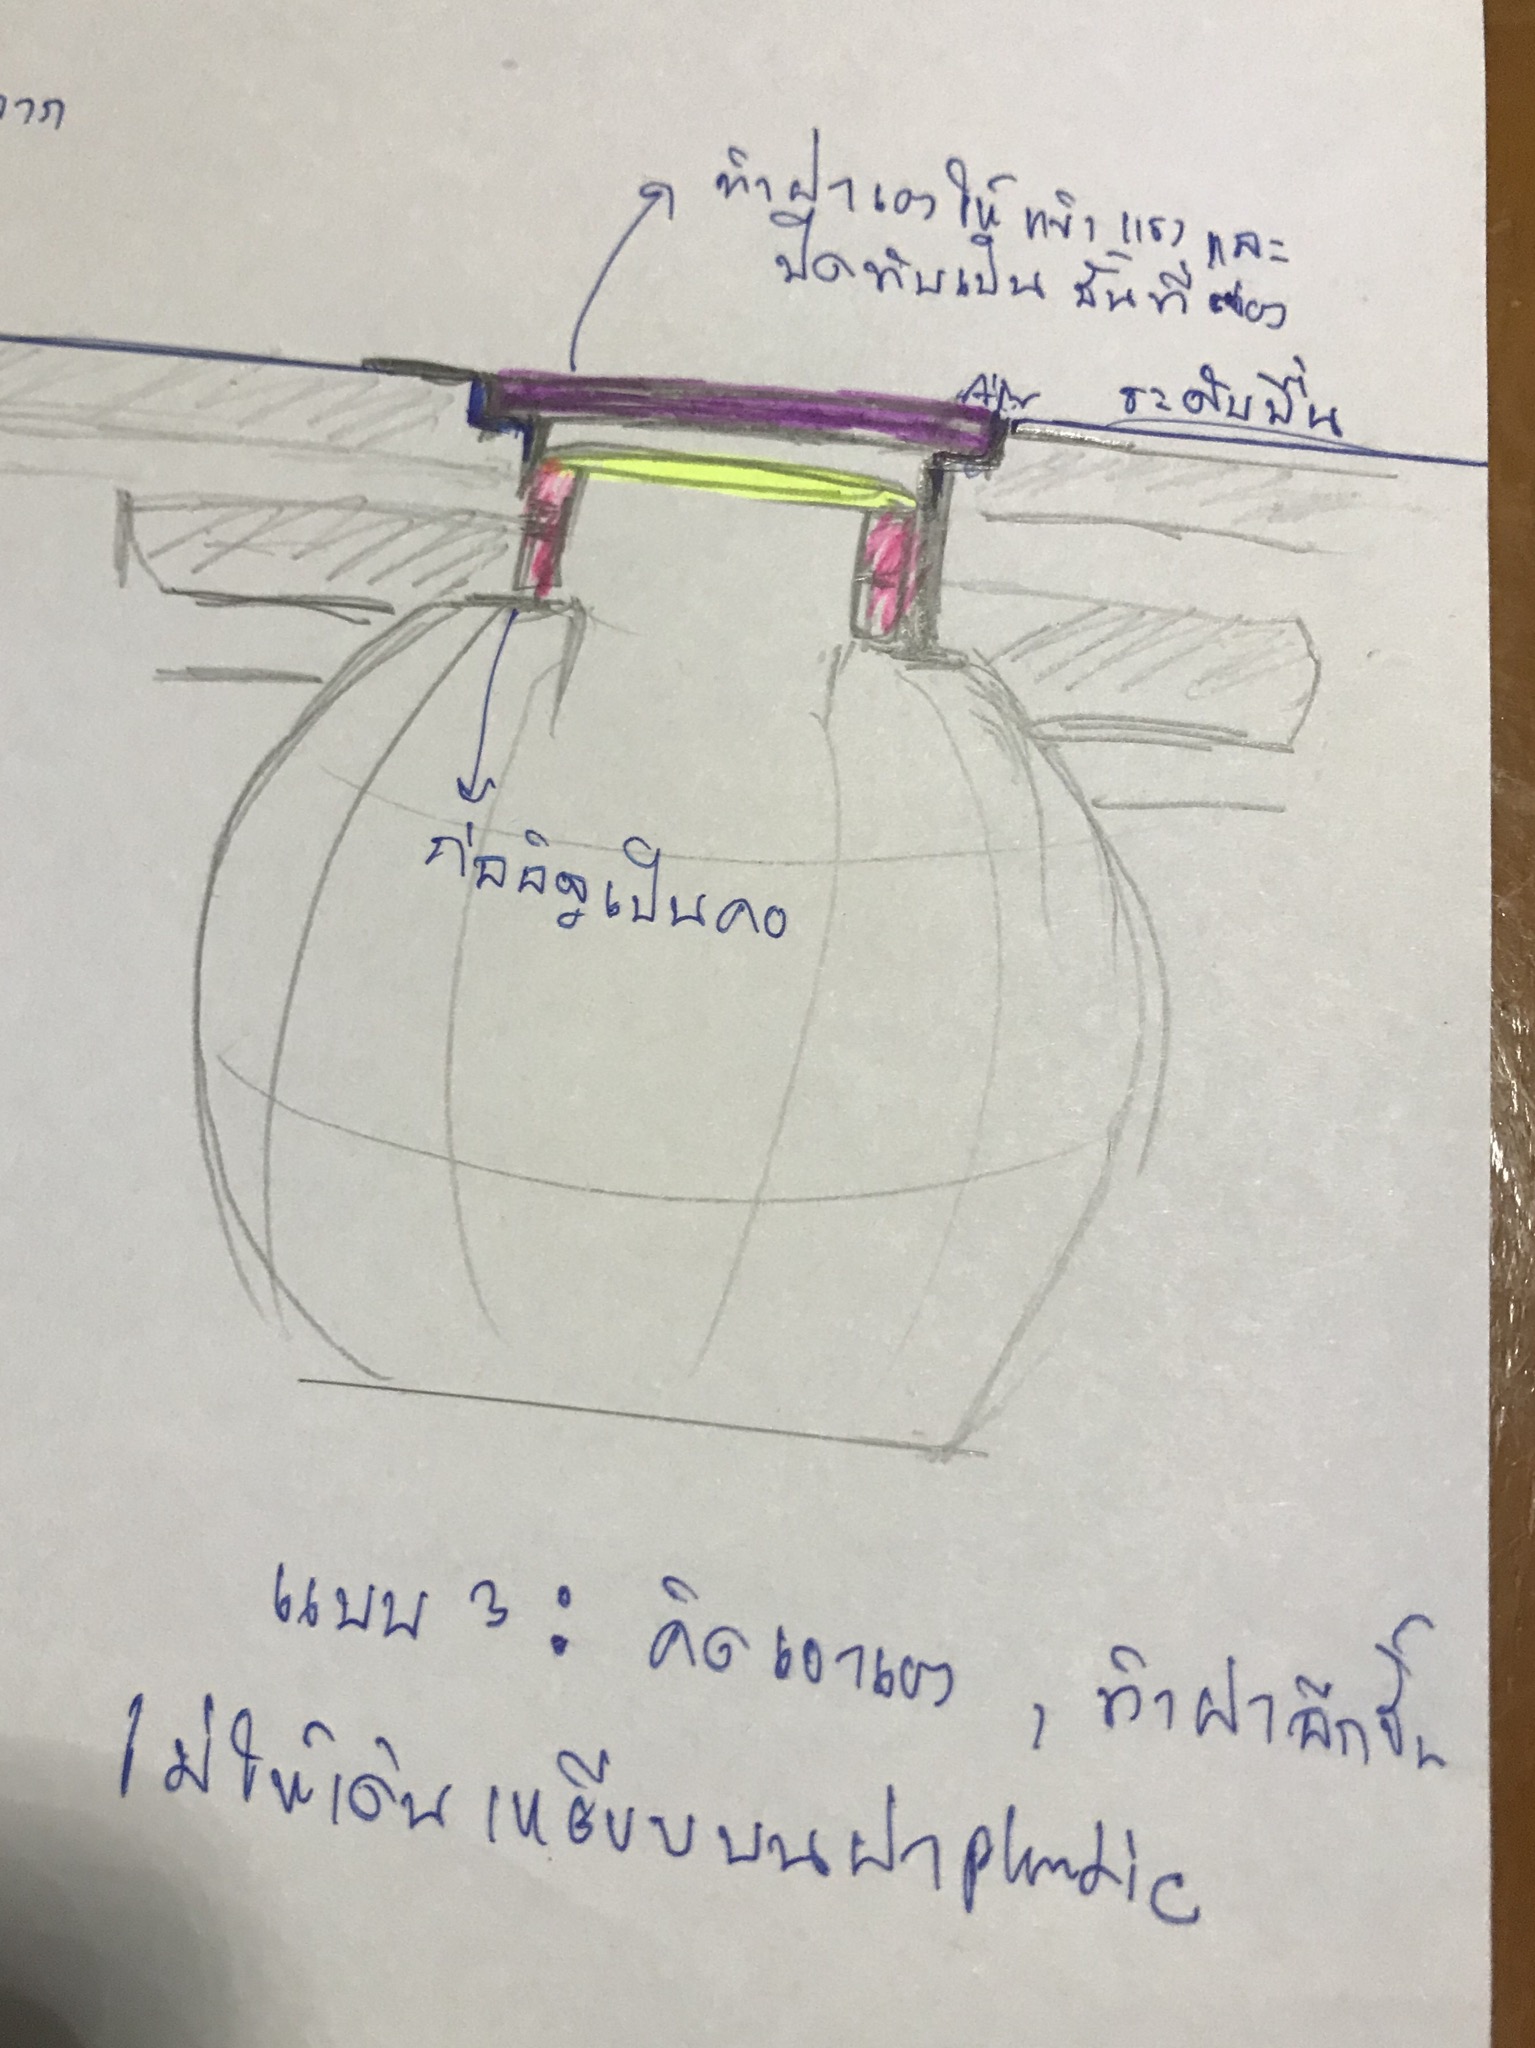 ทำฝาเองให้แข็งแรง และ
ปิดทับเป็นชั้นที่สอง
ระดับพื้น
ก่ออิฐเป็นคอ
แบบ 3 : คิดเอาเอง , ทำฝาอีกชั้น
ไม่ให้เดินเหยียบบนฝา plastic